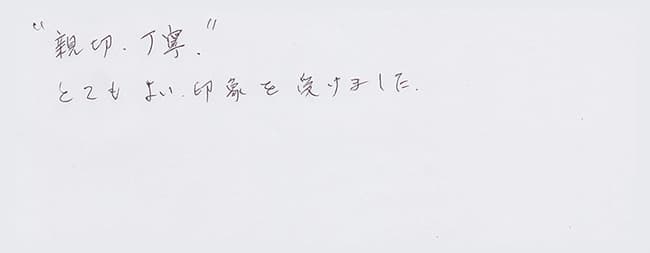 "親切.丁寧."
とても よい.印象を受けました.